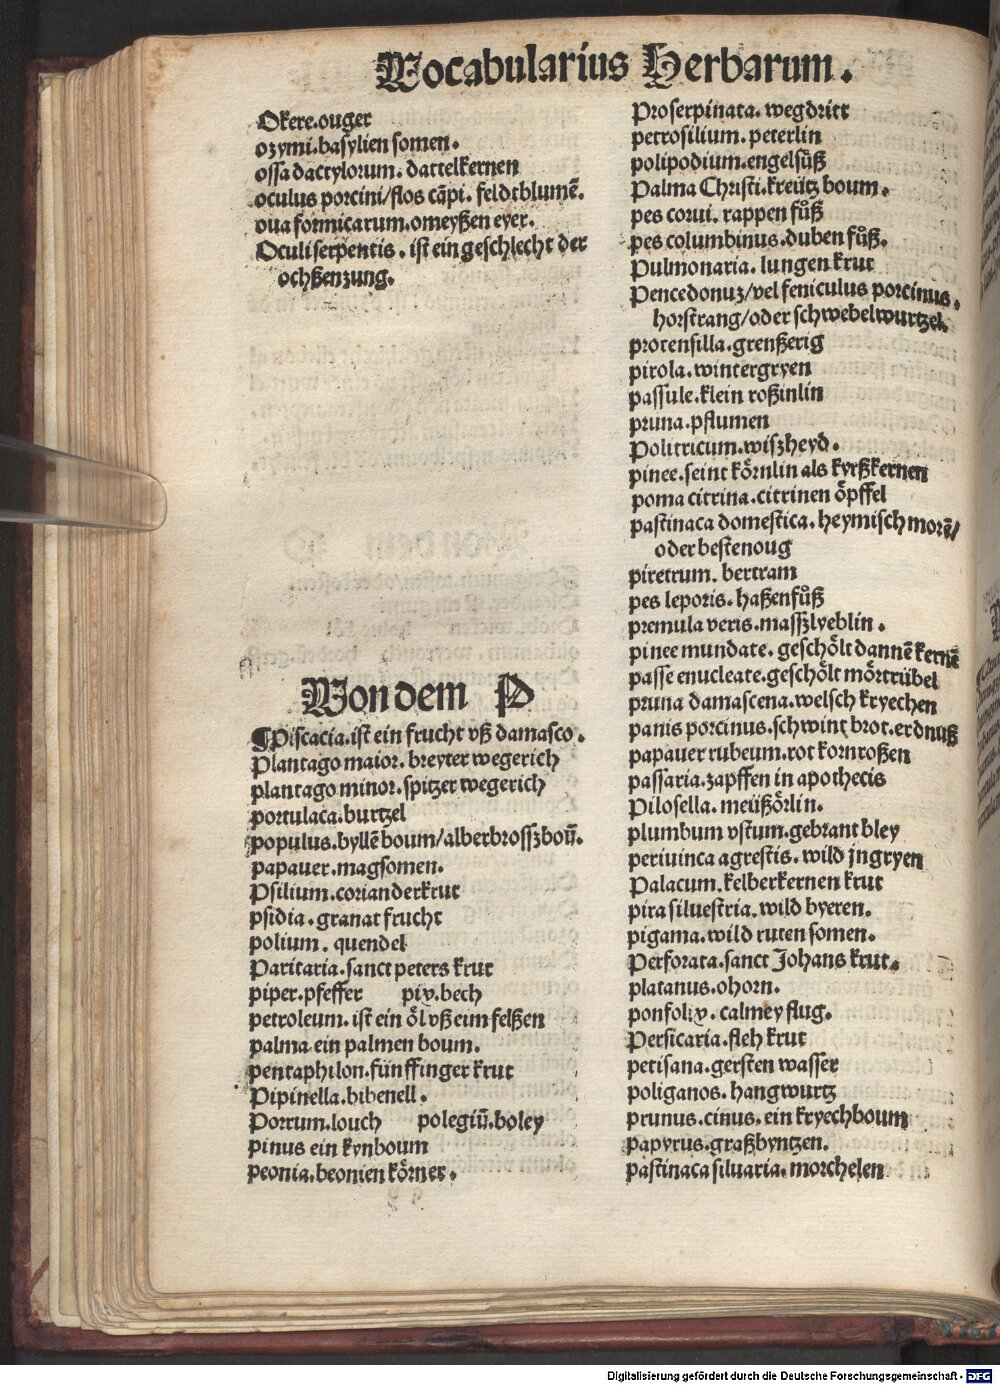 Vocabularius Herbarum.
Okere.ouger
ozymi.basylien somen.
ossa dactylorum. dattelkernen
oculus porcini/flos cāpi. feldtblumē.
oua formicarum.omeyßen eyer.
Oculi serpentis. ist ein geschlecht der
ochßenzung.
Von dem P
¶Piscacia.ist ein frucht vß damasco.
Plantago maior. breyter wegerich
plantago minor.spitzer wegerich
portulaca.burtzel
populus.byllē boum/alberbrossz boū.
papauer.magsomen.
Psilium.corianderkrut
psidia.granat frucht
polium. quendel
Paritaria.sanct peters krut
piper.pfeffer pix.bech
petroleum.ist ein öl vß eim felßen
palma ein palmen boum.
pentaphilon.fünffinger krut
Pipinella.bibenell.
Porrum.louch polegiū.boley
pinus ein kynboum
peonia.beonien körner.
Proserpinata. wegdritt
petrosilium. peterlin
polipodium.engelsüß
Palma Christi.kreütz boum.
pes corui. rappen fůß
pes columbinus.duben fůß.
Pulmonaria. lungen krut
Pencedonuz/vel feniculus porcinus.
horstrang/oder schwebelwurtzel.
protensilla.grenßerig
pirola.wintergryen
passule.klein roßinlin
pruna.pflumen
Politricum.wiszheyd.
pinee.seint körnlin als kyrßkernen
poma citrina.citrinen öpffel
pastinaca domestica.heymisch morē/
oder bestenoug
piretrum. bertram
pes leporis.haßenfůß
premula veris.masszlyeblin.
pinee mundate. geschölt dannē kernē
passe enucleate.geschölt mörtrübel
pruna damascena.welsch kryechen
panis porcinus.schwint brot.erdnuß
papauer rubeum.rot kornroßen
passaria.zapffen in apothecis
Pilosella. meüßörlin.
plumbum vstum.gebrant bley
periuinca agrestis.wild jngryen
Palacum.kelberkernen krut
pira siluestria.wild byeren.
pigama.wild ruten somen.
Perforata.sanct Johans krut.
platanus.ohorn.
ponfolix. calmey flug.
Persicaria.fleh krut
petisana.gersten wasser
poliganos. hangwurtz
prunus.cinus.ein kryechboum
papyrus.graßbyntzen.
pastinaca siluaria.morchelen
Digitalisierung gefördert durch die Deutsche Forschungsgemeinschaft - DFG